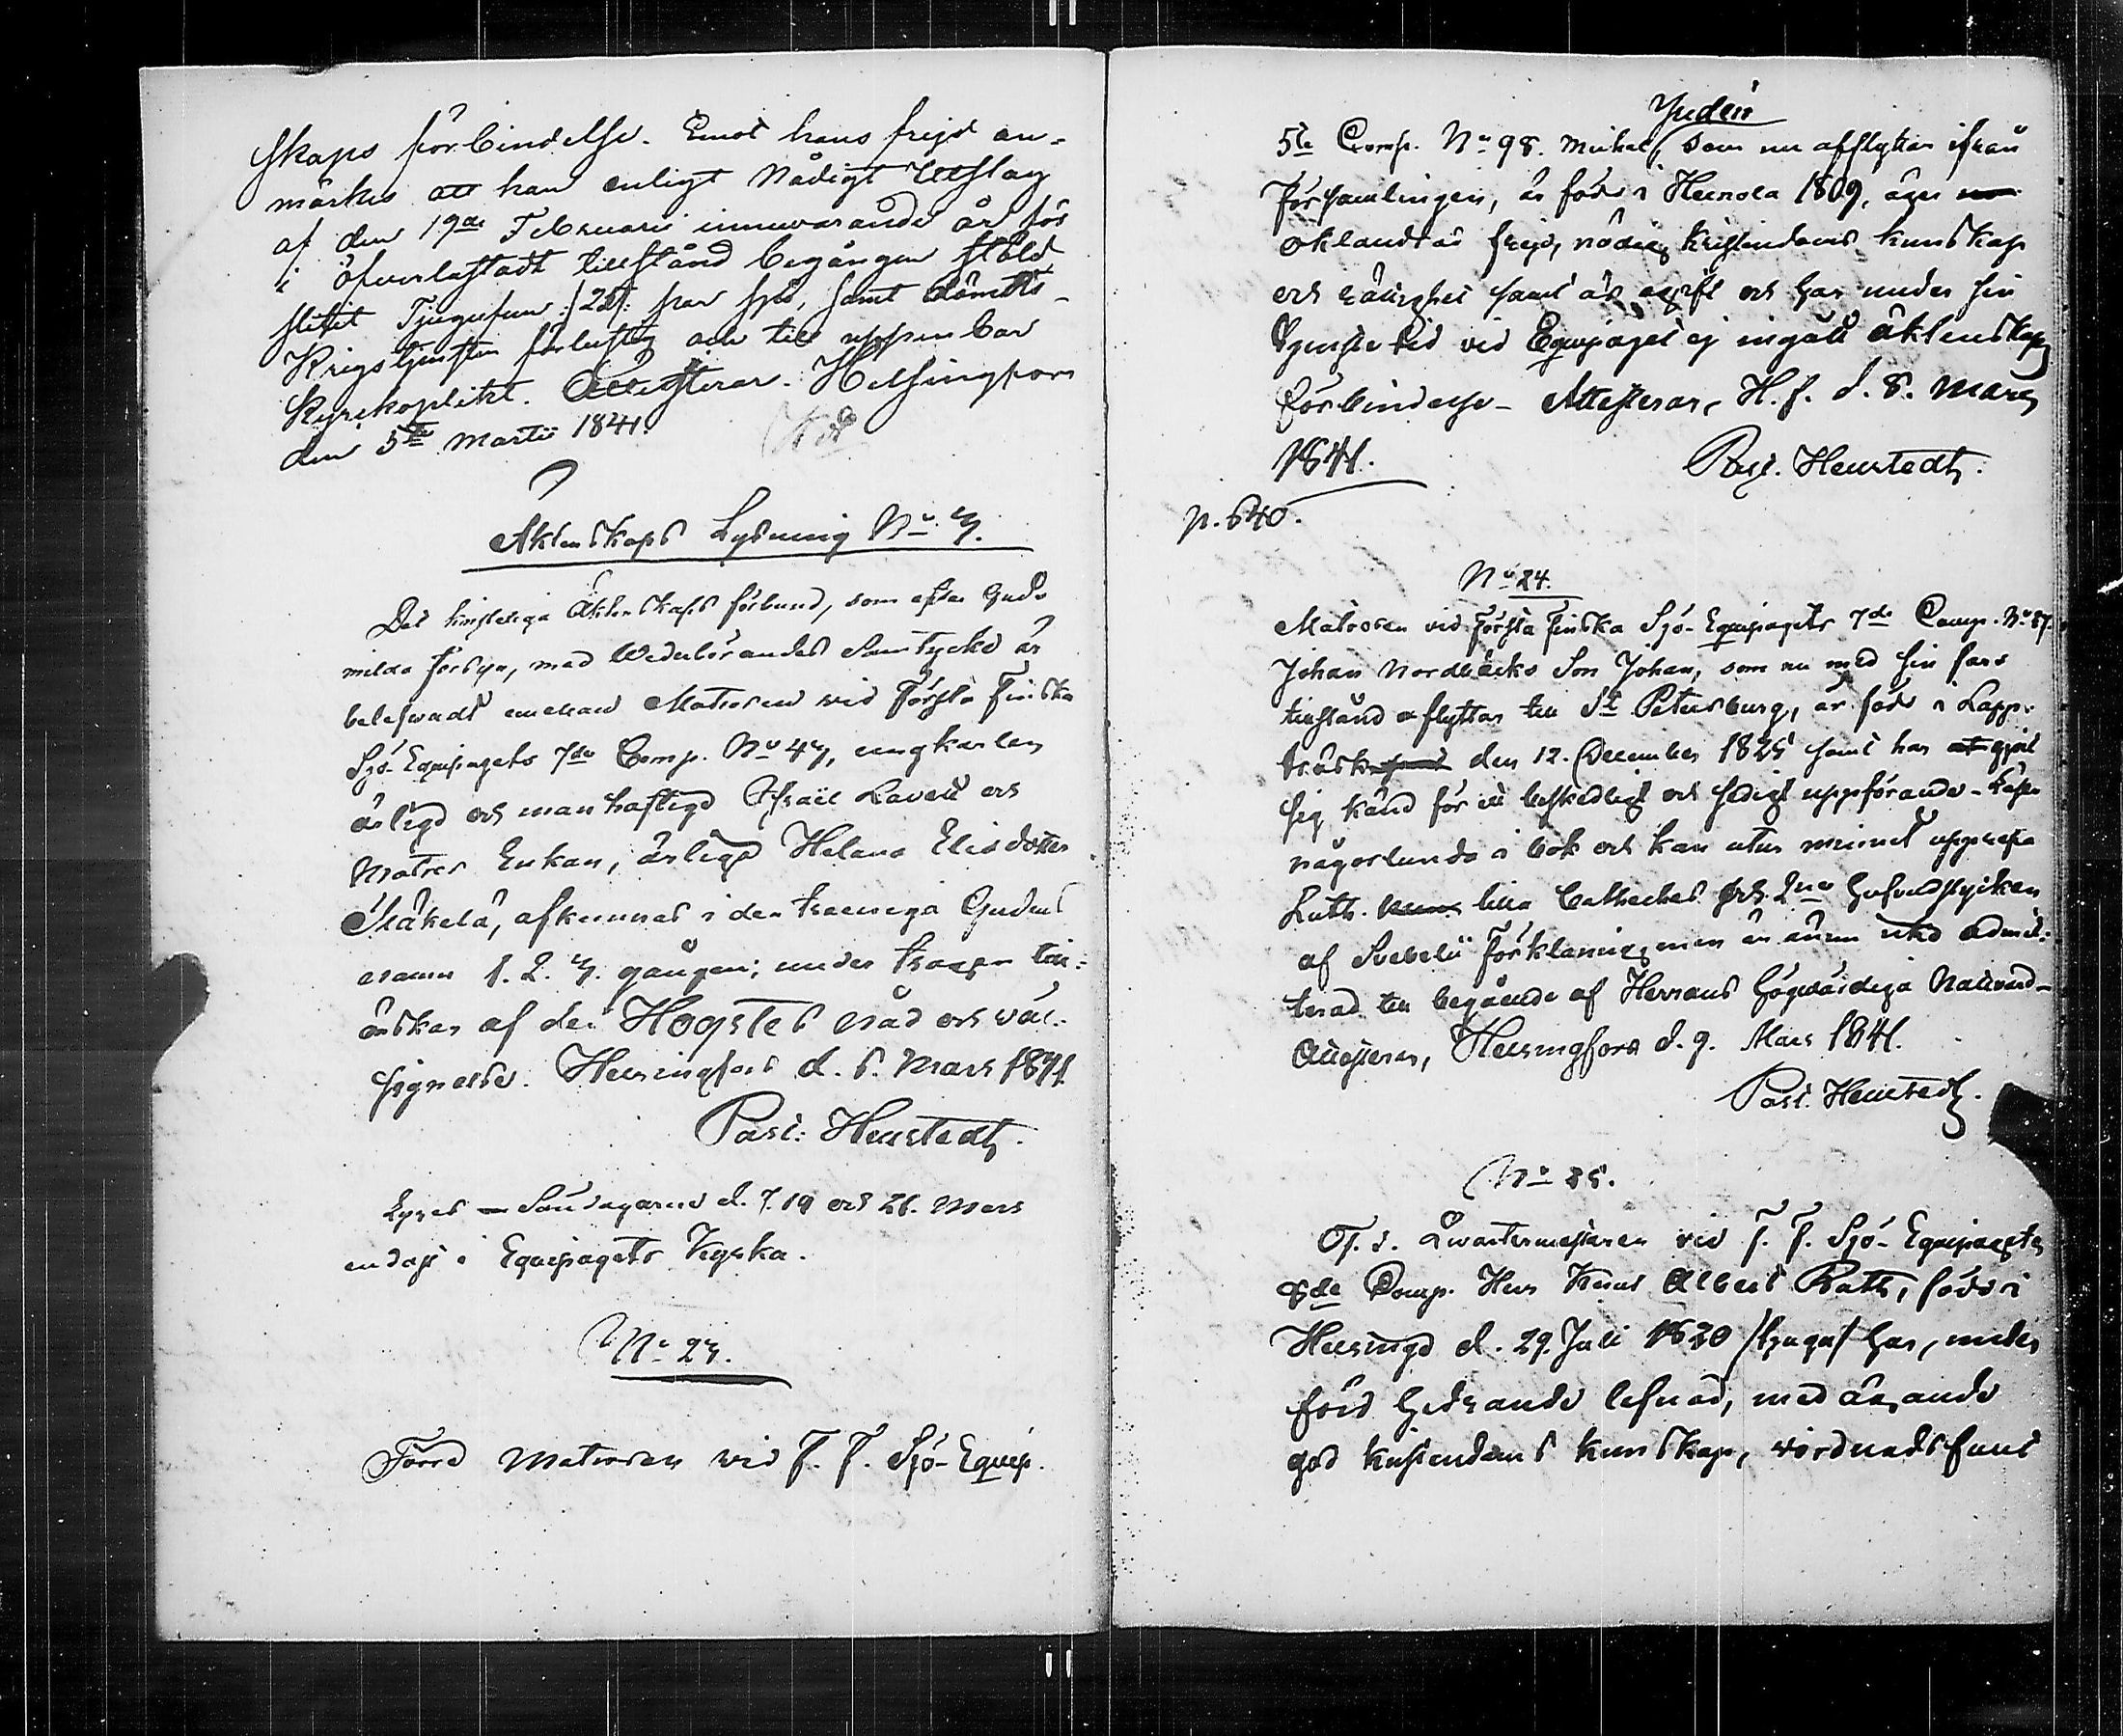 skaps förbindelse. Emot hans frejd an-
märkes att han enligt Nådigt Utslag
af den 19de Februarii innevarande år för
i öfverlastadt tillstånd begången stöld
slitit Tjugufem /:25:/ par spö, samt dömts
Krigstjensten förlustig och till uppenbar
Kyrkoplikt. Attesterar. Helsingfors
den 5te Martii 1841.
Äktenskaps Lysning No 3.
Det kristeliga Äktenskaps förbund, som efter Guds
milda försyn, med Wederbörandes Samtycke är
beleswadt emellan Matrosen vid Första Finska
Sjö-Equipagets 7de Comp. No 43, ungkarlen
ärlige och manhaftige Israël Lavell och
Matros Enkan, ärliga Helena Elisdotter
afkunnas i den treeniga Guds
namn 1. 2. 3. gången;
önskas af den Högstes nåd och väl-
signelse. Helsingfors d. 6. Mars 1841
Past. Hellstedt.
Lyses Söndagarne d. 7. 14 och 21. Mars
endast i Equipagets Kyrka.
No 23.
Förre Matrosen vid F. F. Sjö-Equip.
Judin
5te Comp. No 98. Mickel, som nu afflyttar ifrån
Församlingen, är född i Heinola 1809, äger
oklandrad frejd, nödig kristendoms kunskap
och samt är ogift och har under sin
tjenste tid vid Equipaget ej ingått äktenskaps
förbindelse - Attesterar, H.f. d. 8. Mars
1841. Past. Hellstedt.
p. 640.
No 24.
Matrosen vid Första Finska Sjö-Equipagets 7de Comp. No 87.
Johan Nordbäcks Son Johan, som nu med sin fars
tillstånd afflyttar till St Petersburg, är född i Lapp-
träsk den 12. December 1825 samt har gjort
sig känd för ett beskedligt och sedigt uppförande - Läser
någorlunda i bok och kan utur minnet upprepa
Luth. lilla Catheches och 2ne Hufvudstycken
af Svebelii Förklaring, men är ännu icke admit-
terad till begående af Herrans Högvärdiga Nattvard -
Attesterar, Helsingfors d. 9. Mars 1841.
Past. Hellstedt.
No 25.
Qvartermästaren vid F. F. Sjö-Equipagets
8de Comp. Herr Knut Albert Rath, född i
Helsinge d. 29. Juli 1820 /tjugu/ har, under
förd hedrande lefnad, med ägande
god kristendoms kunskap, vördnadsfullt